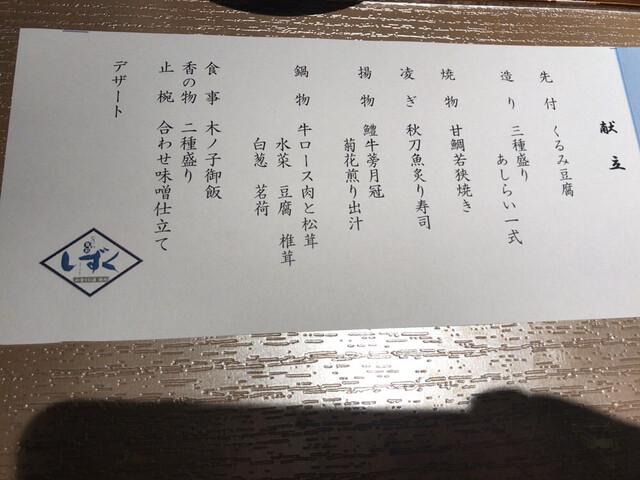 献立
先付 くるみ豆腐
造り 三種盛り
あしらい一式
焼物 甘鯛若狭焼き
凌ぎ 秋刀魚炙り寿司
揚物 鱧牛蒡月冠
菊花煎り出汁
鍋物 牛ロース肉と松茸
水菜 豆腐 椎茸
白葱 茗荷
食事 木ノ子御飯
香の物 二種盛り
止椀 合わせ味噌仕立て
デザート
しずく